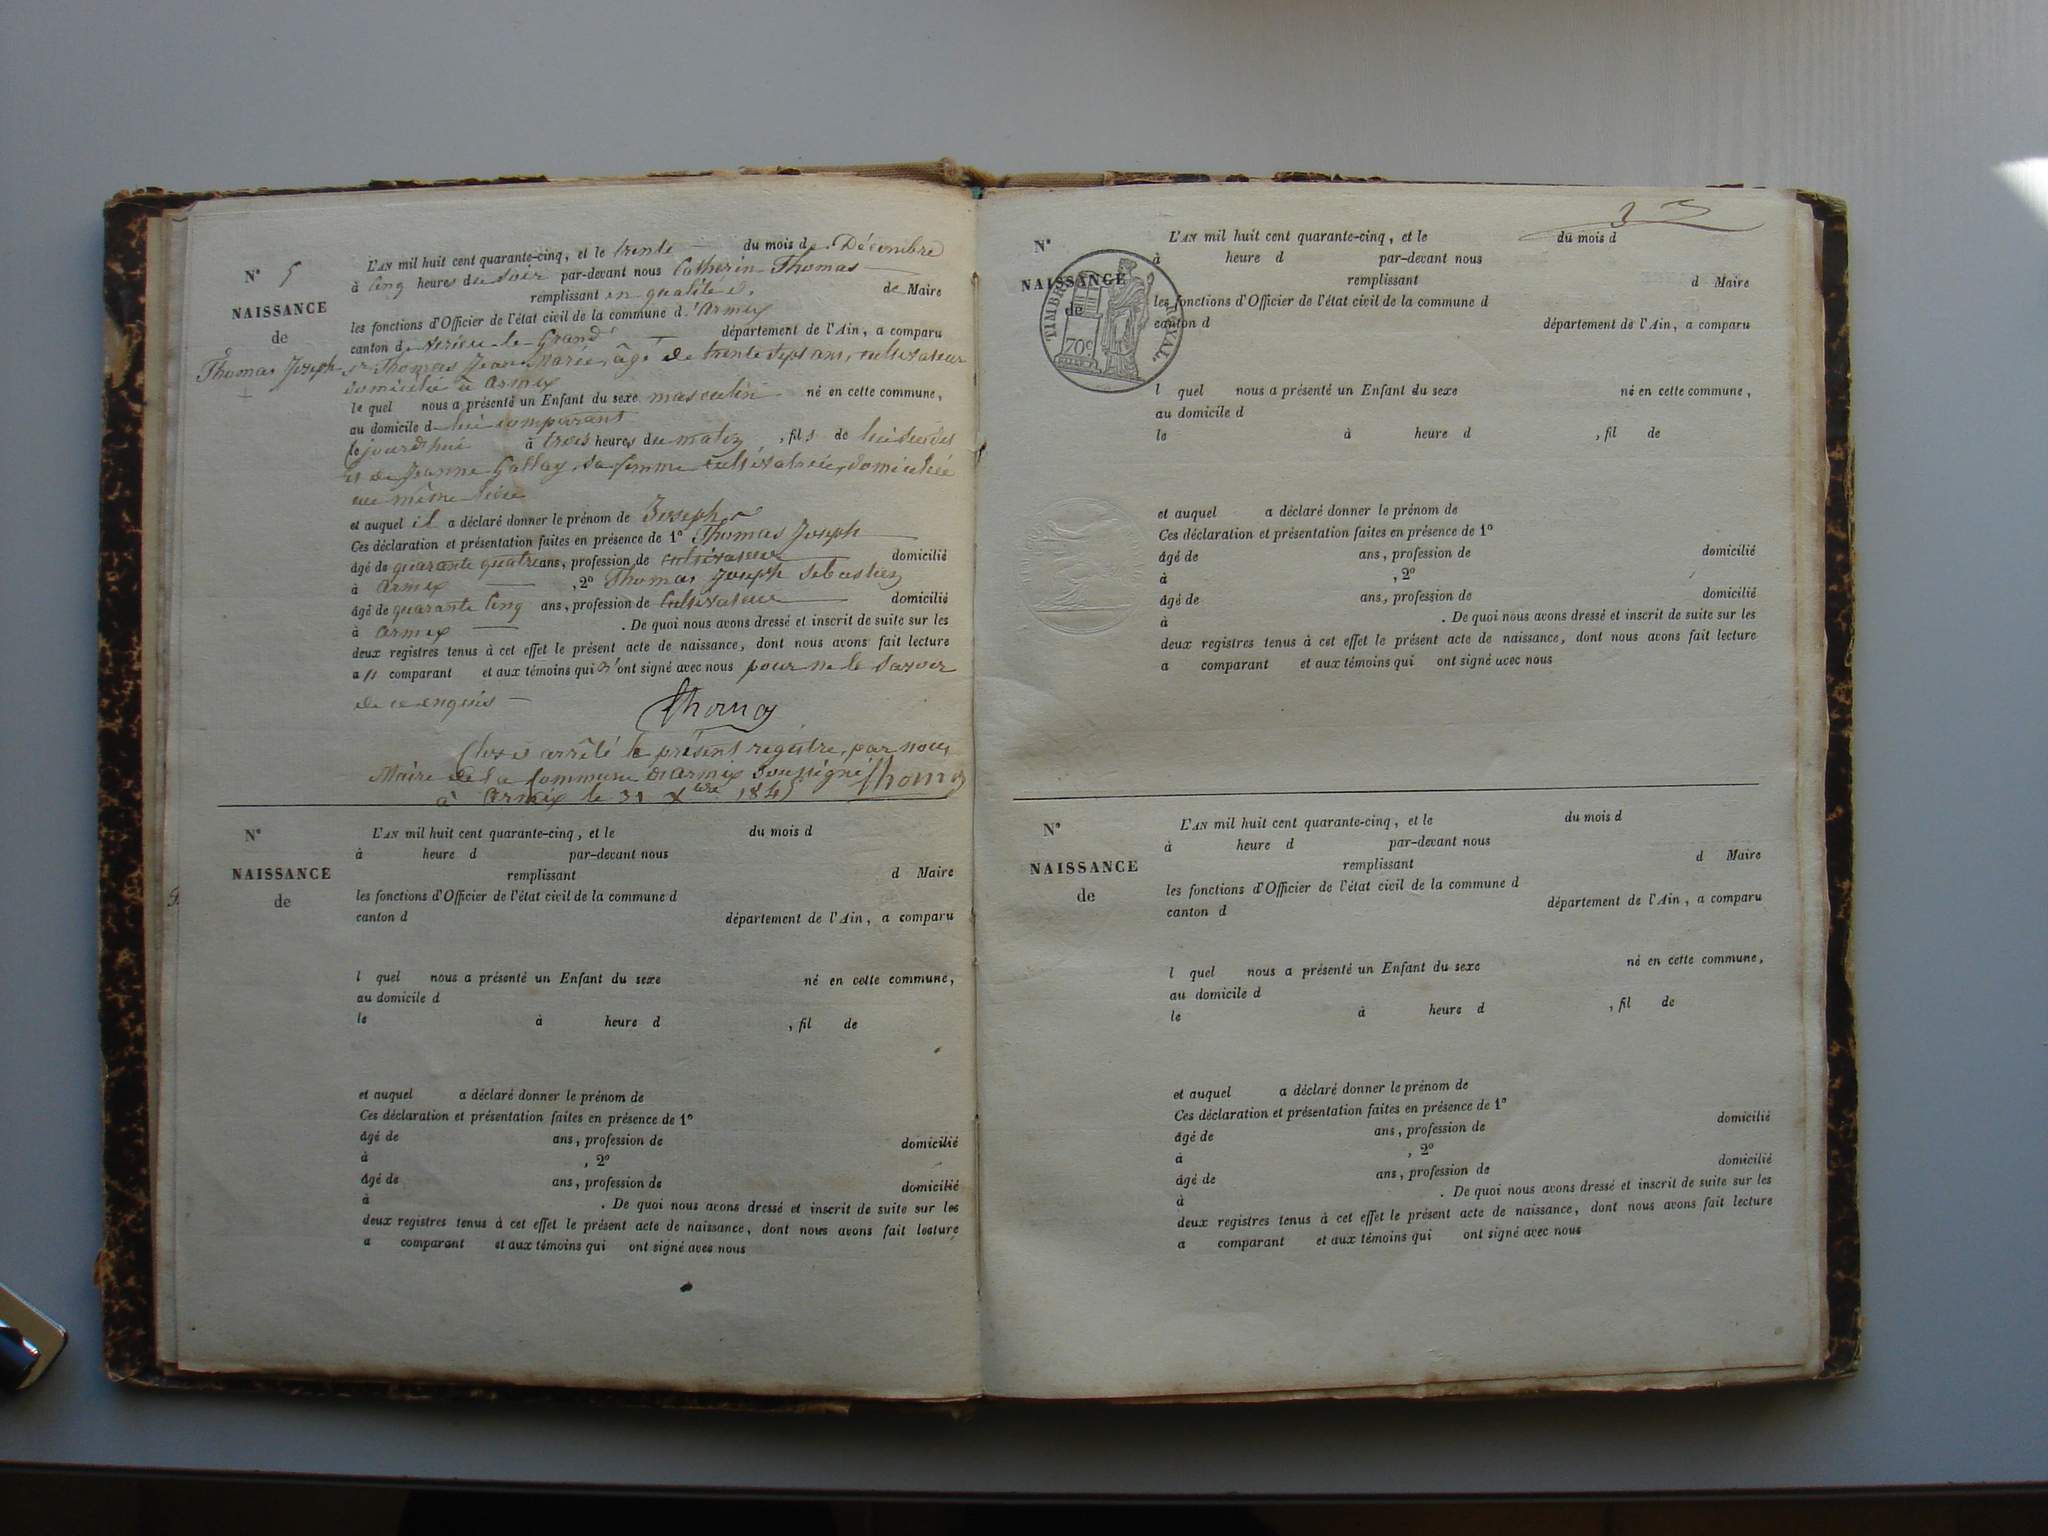 N° 5
NAISSANCE
de
Thomas Joseph
L'AN mil huit cent quarante-cinq, et le trente du mois de Décembre
à cinq heures du soir par-devant nous Catherin Thomas
remplissant en qualité de Maire
les fonctions d'Officier de l'état civil de la commune d'armix
canton de virieu-le-Grand département de l'Ain, a comparu
sr Thomas Jean Marie, âgé de trente sept ans, cultivateur
domicilié à armix
le quel nous a présenté un Enfant du sexe masculin né en cette commune,
au domicile de lui comparant
le jourd'hui à trois heures du matin, fils de lui
et de Jeanne Gallay sa femme cultivatrice, domiciliée
au même lieu
et auquel il a déclaré donner le prénom de Joseph
Ces déclaration et présentation faites en présence de 1° Thomas Joseph
âgé de quarante quatre ans, profession de cultivateur domicilié
à armix, 2° Thomas Joseph Sebastien
âgé de quarante cinq ans, profession de cultivateur domicilié
à armix. De quoi nous avons dressé et inscrit de suite sur les
deux registres tenus à cet effet le présent acte de naissance, dont nous avons fait lecture
au comparant et aux témoins qui n'ont signé avec nous pour ne le savoir
de ce enquis
Thomas
Clos et arrêté le présent registre, par nous,
Maire de la Commune d'armix soussigné Thomas
à armix le 31 Xbre 1845
N°
NAISSANCE
de
L'AN mil huit cent quarante-cinq, et le du mois d
à heure d par-devant nous
remplissant d Maire
les fonctions d'Officier de l'état civil de la commune d
canton d département de l'Ain, a comparu
l quel nous a présenté un Enfant du sexe né en cette commune,
au domicile d
le à heure d , fil de
et auquel a déclaré donner le prénom de
Ces déclaration et présentation faites en présence de 1°
âgé de ans, profession de domicilié
à , 2°
âgé de ans, profession de domicilié
à . De quoi nous avons dressé et inscrit de suite sur les
deux registres tenus à cet effet le présent acte de naissance, dont nous avons fait lecture
a comparant et aux témoins qui ont signé avec nous
3
N°
NAISSANCE
de
TIMBRE ROYAL.
70c
L'AN mil huit cent quarante-cinq, et le du mois d
à heure d par-devant nous
remplissant d Maire
les fonctions d'Officier de l'état civil de la commune d
canton d département de l'Ain, a comparu
l quel nous a présenté un Enfant du sexe né en cette commune,
au domicile d
le à heure d , fil de
et auquel a déclaré donner le prénom de
Ces déclaration et présentation faites en présence de 1°
âgé de ans, profession de domicilié
à , 2°
âgé de ans, profession de domicilié
à . De quoi nous avons dressé et inscrit de suite sur les
deux registres tenus à cet effet le présent acte de naissance, dont nous avons fait lecture
a comparant et aux témoins qui ont signé avec nous
N°
NAISSANCE
de
L'AN mil huit cent quarante-cinq, et le du mois d
à heure d par-devant nous
remplissant d Maire
les fonctions d'Officier de l'état civil de la commune d
canton d département de l'Ain, a comparu
l quel nous a présenté un Enfant du sexe né en cette commune,
au domicile d
le à heure d , fil de
et auquel a déclaré donner le prénom de
Ces déclaration et présentation faites en présence de 1°
âgé de ans, profession de domicilié
à , 2°
âgé de ans, profession de domicilié
à . De quoi nous avons dressé et inscrit de suite sur les
deux registres tenus à cet effet le présent acte de naissance, dont nous avons fait lecture
a comparant et aux témoins qui ont signé avec nous